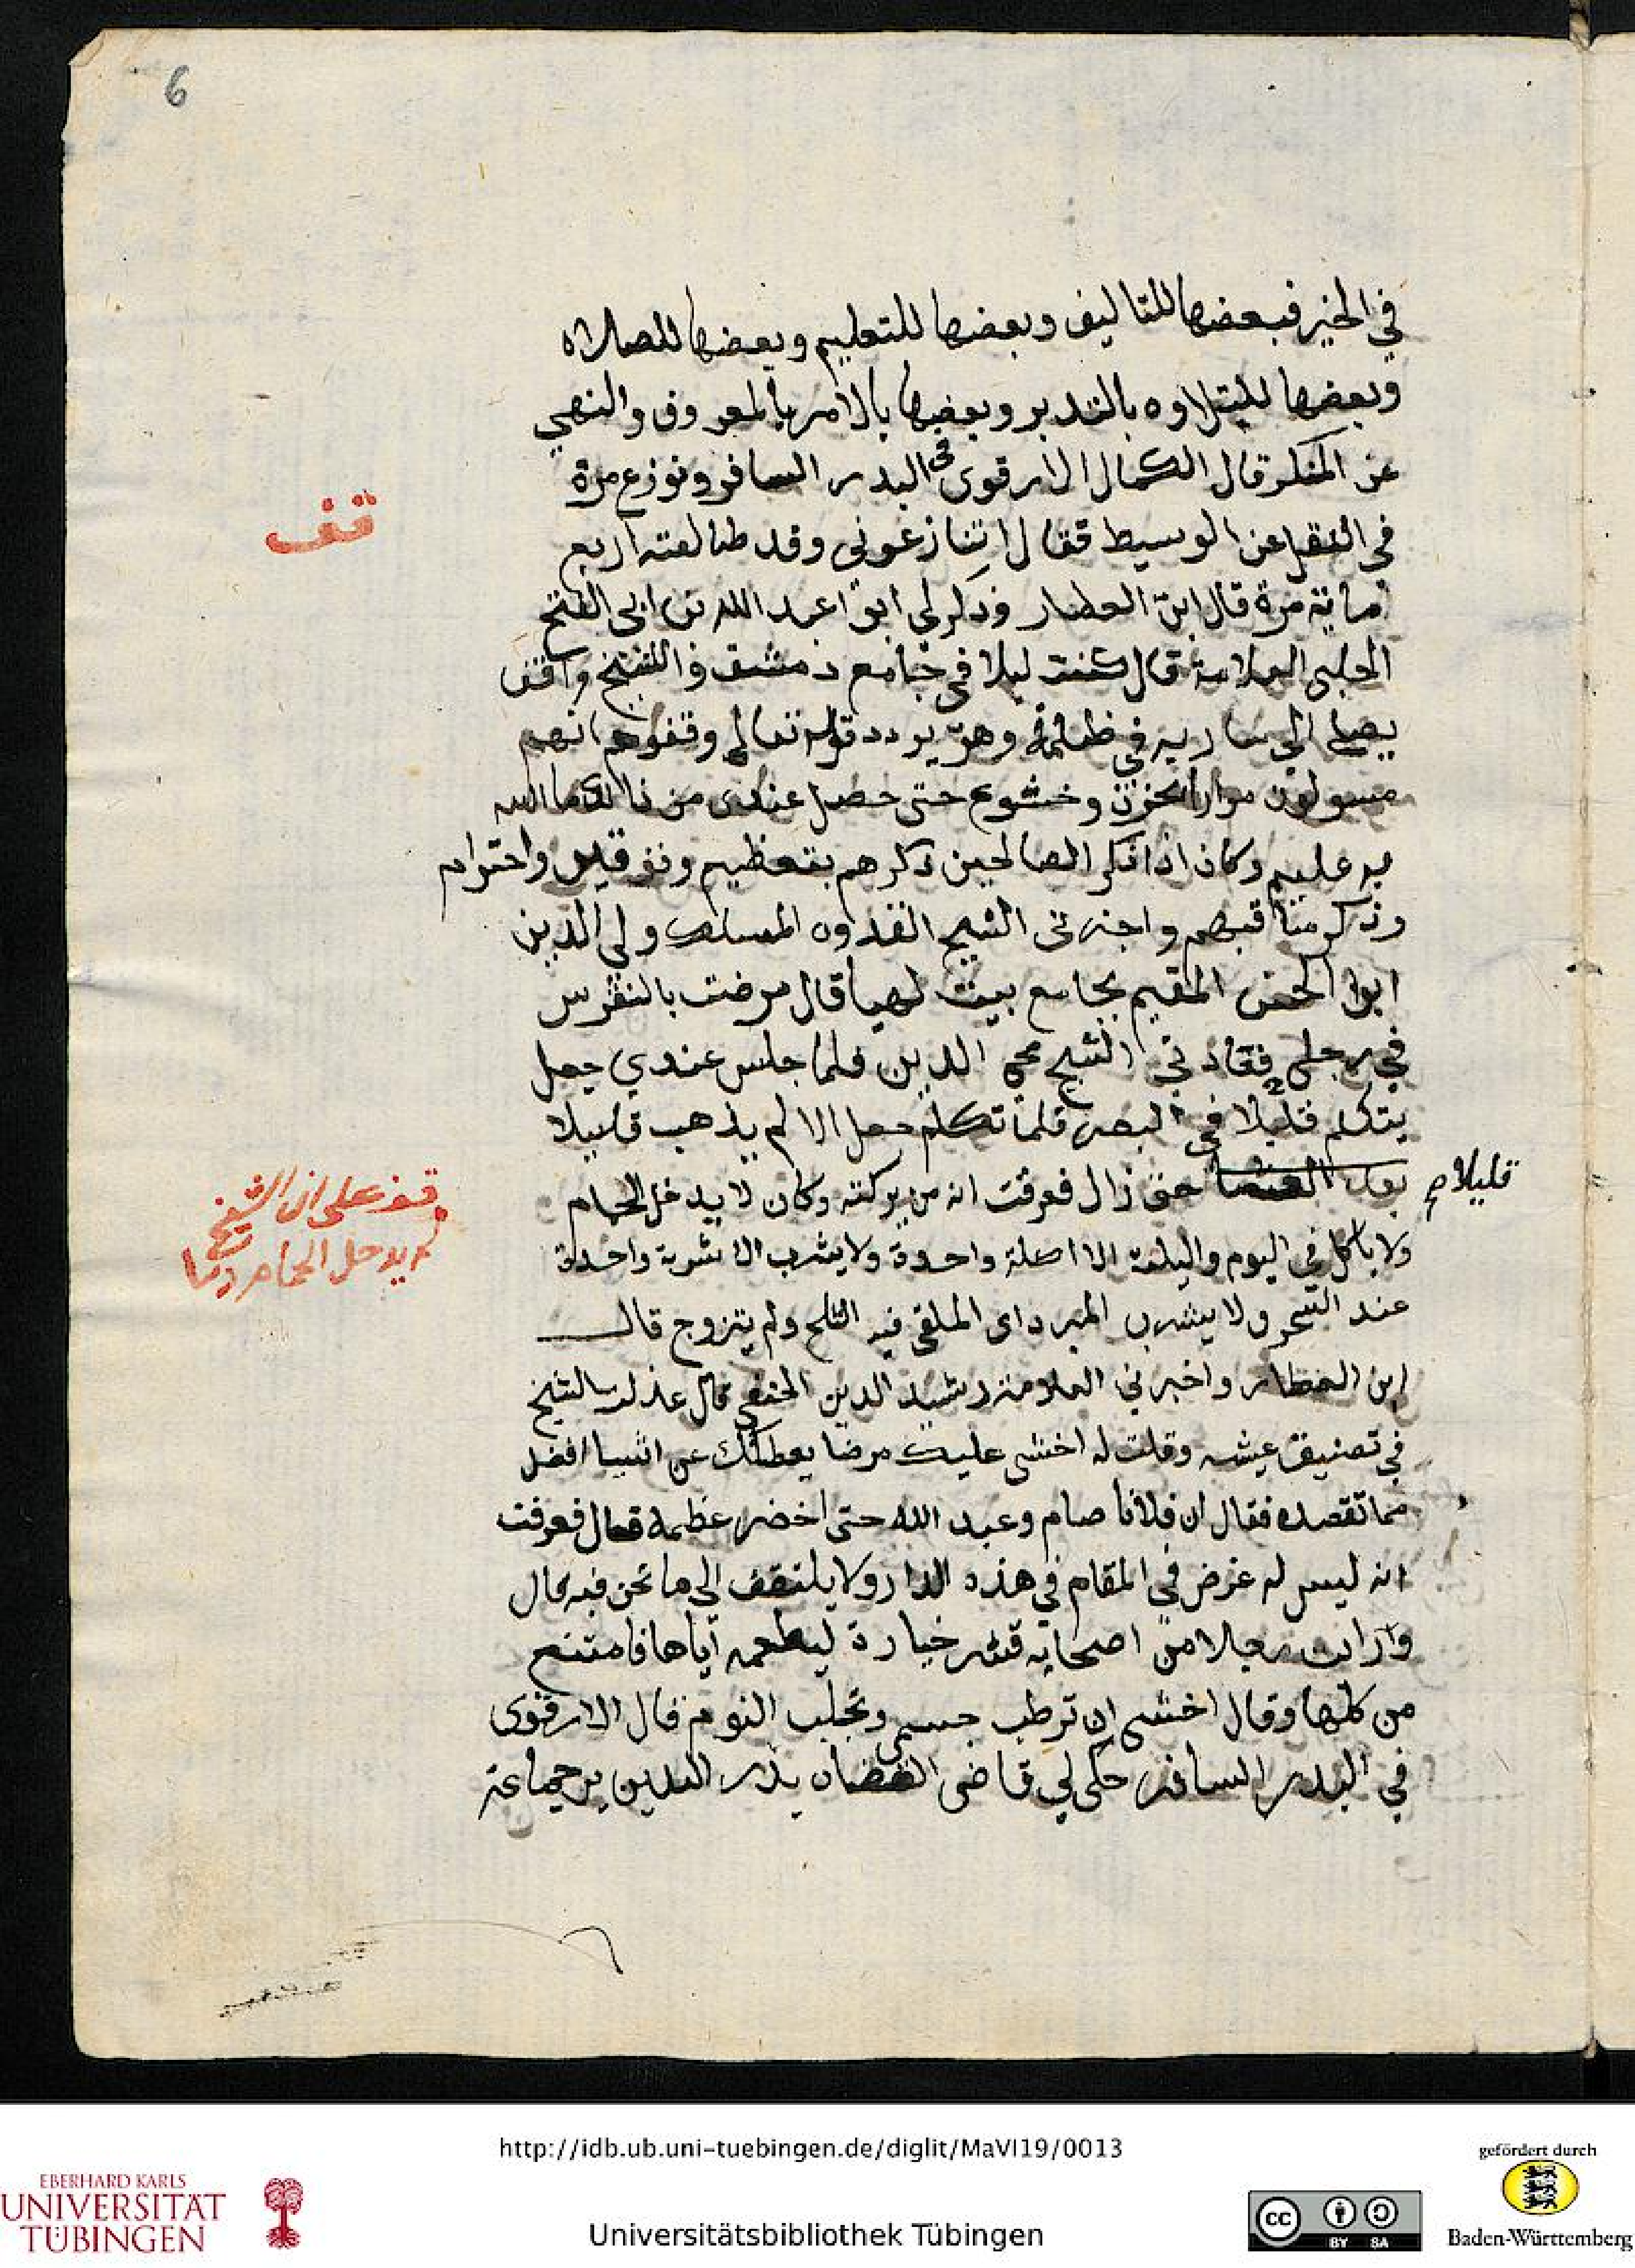 6
في الخير فبعضها للتاليف وبعضها للتعليم وبعضها للصلاه
وبعضها للتلاوه بالتدبر وبعضها بالامر بالمعروف والنهي
عن المنكر قال الكمال الادفوى في البدر السافر ونوزع مرة
في النقل عن الوسيط فقال اتنازعوني وقد طالعته اربع
قف
مائة مرة قال ابن العطار وذكر لي ابو اعبد الله بن ابي الفتح
الحلبي العلامة قال كنت ليلا في جامع دمشق والشيخ واقف
يصلي الى ساريه في ظلمة وهو يردد قوله تعالى وقفوهم انهم
مسولون مرارا بحزن وخشوع حتى حصل عندى من ذالك ما الله
به عليم وكان اذا ذكر الصالحين ذكرهم بتعظيم وتوقير واحترام
وذكر مناقبهم واخبرنى الشيخ القدوه المسلك ولي الدين
ابوا الحسن المقيم بجامع بيت لهيا قال مرضت بالنقرس
في رجلي فعادني الشيخ محي الدين فلما جلس عندي جعل
يتكلم قليلا في الصبر فلما تكلم جعل الالم يذهب قليلا
بعد حتى زال فعرفت انه من بركته وكان لا يدخل الحمام
قليلا صح
قف على ان الشيخ
لم يدخل الحمام
ولا ياكل في اليوم والليلة الا اكلة واحدة ولا يشرب الا شربة واحدة
عند السحر ولا يشرب المبرد اى الملقى فيه الثلج ولم يتزوج قال
ابن العطار واخبرني العلامة رشيد الدين الحنفي قال عذلت الشيخ
في تضييق عيشه وقلت له اخشى عليك مرضا يعطلك عن اشيا افضل
مما تقصده فقال ان فلانا صام وعبد الله حتى اخضر عظمه قال فعرفت
انه ليس له غرض في المقام في هذه الدار ولا يلتفت الى ما نحن فيه قال
ورايت رجلا من اصحابه قشر خيارة ليطعمه اياها فامتنع
من كلها وقال اخشى ان ترطب جسمي وتجلب النوم قال الادفوى
في البدر السافر حكى لي قاضى القضاه بدر الدين بن جماعة
http://idb.ub.uni-tuebingen.de/diglit/MaVI19/0013
Universitätsbibliothek Tübingen
EBERHARD KARLS
UNIVERSITÄT
TÜBINGEN
cc BY SA
gefördert durch
Baden-Württemberg